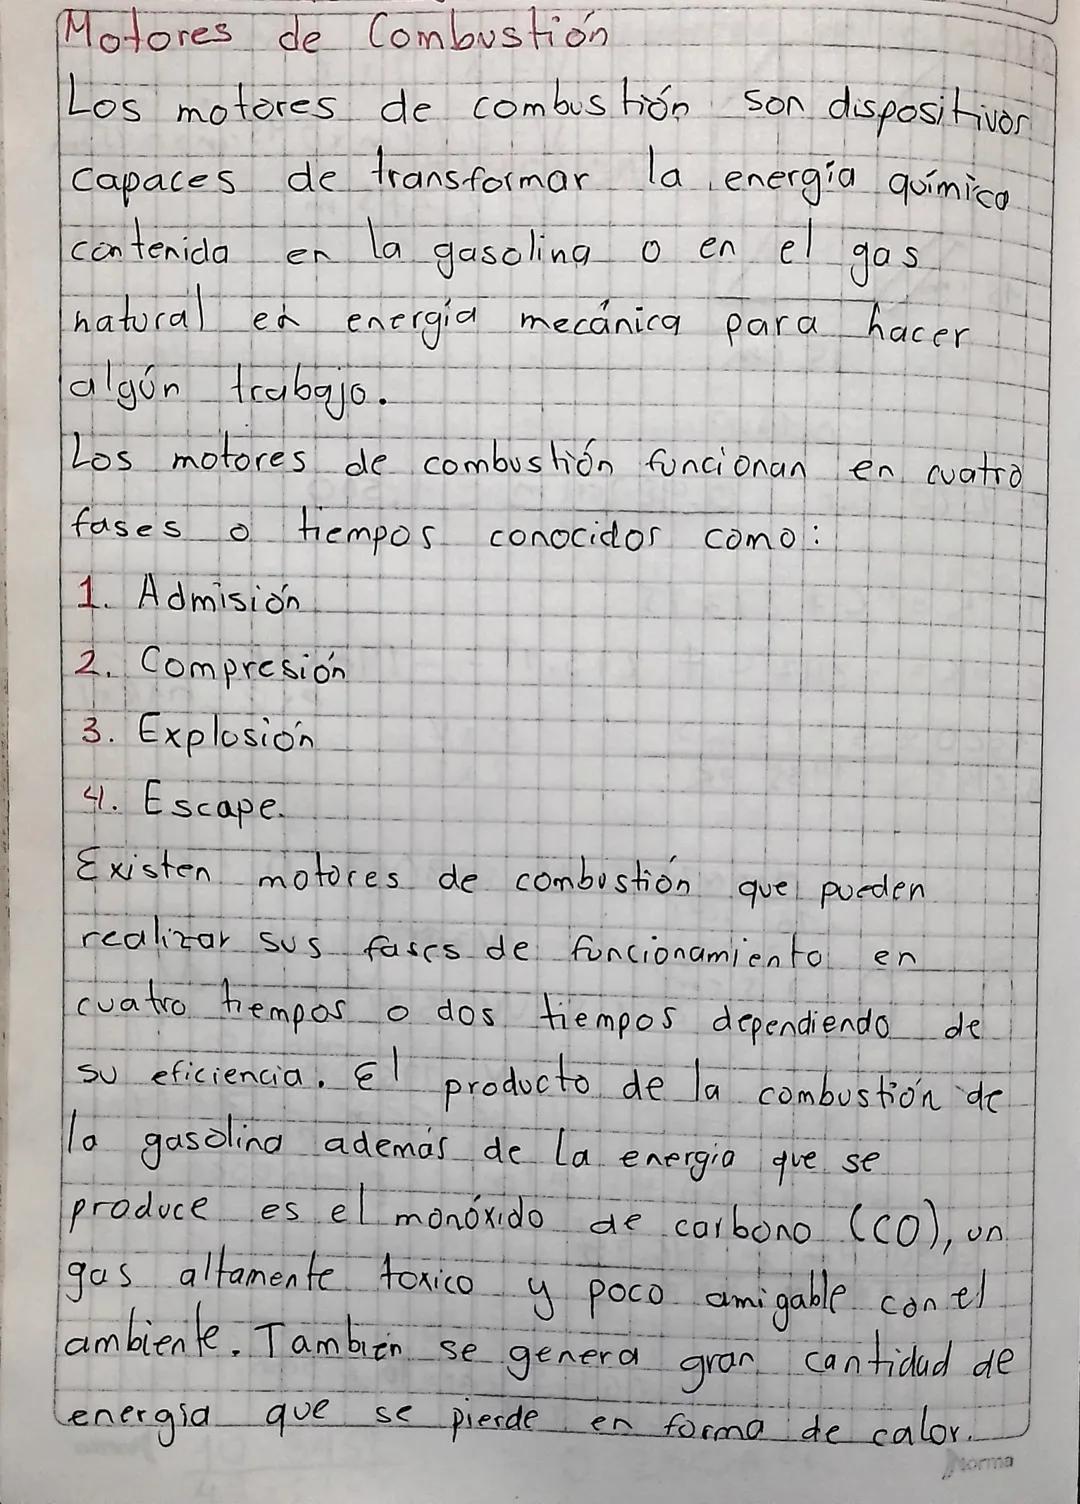 Motores de Combustión
Los motores de combustión son dispositivos
capaces de transformar la energía química
contenida en la gasolina o en el gas
natural en energía mecánica para hacer
algún trabajo.
Los motores de combustión funcionan en cuatro
fases o tiempos conocidos como:
1. Admisión
2. Compresión
3. Explosión
4. Escape.
Existen motores de combustión que pueden
realizar sus fases de funcionamiento en
cuatro tiempos o dos tiempos dependiendo de
su eficiencia. El producto de la combustión de
la gasolina además de la energía que se
produce es el monóxido de carbono (CO), un
gas altamente toxico y poco amigable con el
ambiente. Tambien se genera gran cantidad de
energía que se pierde en forma de calor.
Norma